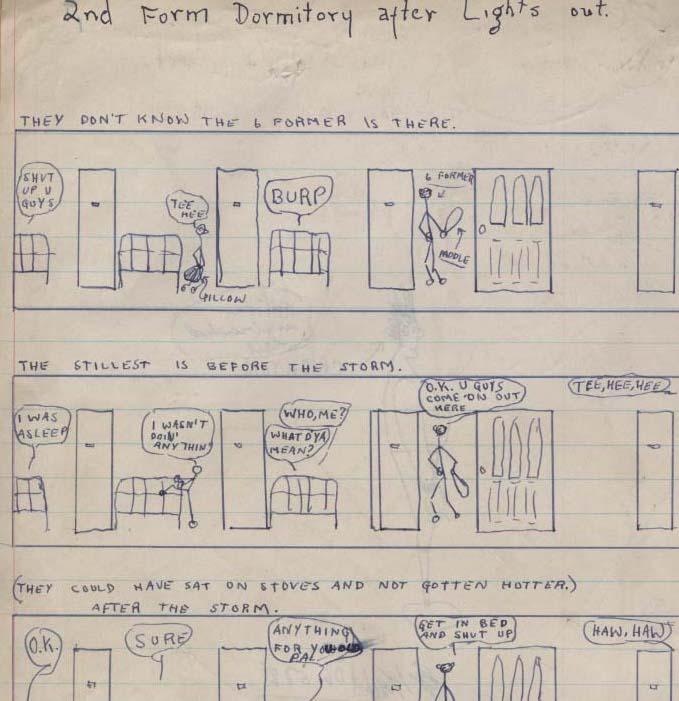 2nd Form Dormitory after Lights out.
THEY DON'T KNOW THE 6 FORMER IS THERE.
SHUT
UP U
GUYS
TEE
HEE
PILLOW
BURP
6 FORMER
PADDLE
THE STILLEST IS BEFORE THE STORM.
I WAS
ASLEEP
I WASN'T
DOIN'
ANYTHIN'
WHO, ME?
WHAT D'YA
MEAN?
O.K. U GUYS
COME ON OUT
HERE
TEE, HEE, HEE
(THEY COULD HAVE SAT ON STOVES AND NOT GOTTEN HOTTER.)
AFTER THE STORM.
O.K.
SURE
ANYTHING
FOR YOU
PAL
GET IN BED
AND SHUT UP
HAW, HAW